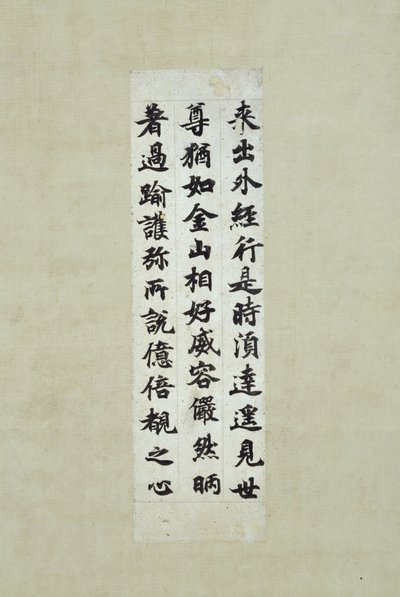 来出外經行是時湏達遥見世
尊猶如金山相好威容儼然昞
著過踰護弥所說億倍覩之心